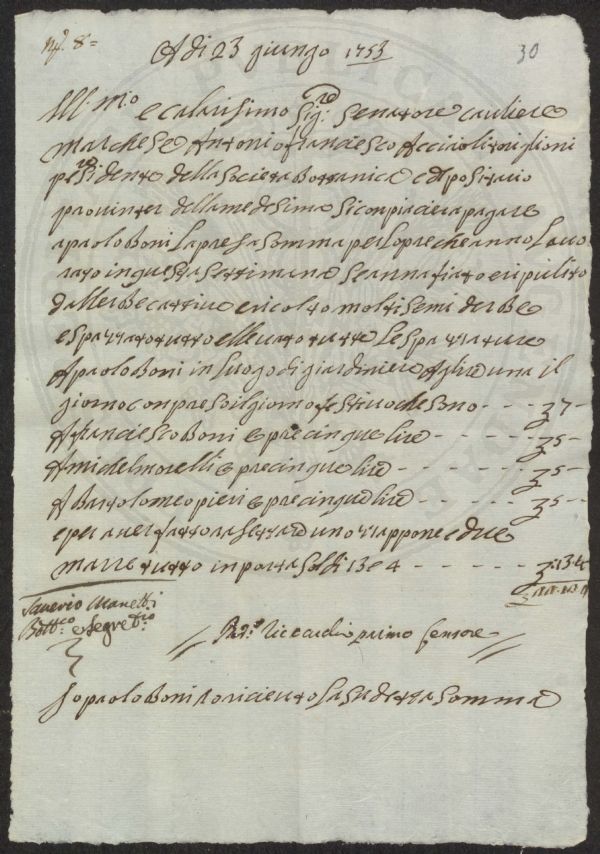 N.º 8=
Adi 23 giungo 1753
30
Ill.mo e calarisimo Sig.re Senatore caualiere
marchese Antonio francesco Acciaioli toriglioni
presidente della Societa Bottanicha e dipositario
prouinter della medesima Siconpiaciera pagare
apaolo Boni la presa somma per lopre che anno lauo
rato in questa Settimana Se annafiato e ripulito
dallerbe cattiue e ricolto molti Semi derbe
espazzato tutto elleuato tutte le spazzature
Apaolo Boni in luogo di giardiniere Aglire una il
giorno conpreso il giorno festiuo che sono - - - 7 -
Afrancesco Boni 6 pre cinque lire - - - - 5 -
Amidelmorelli 6 pre cinque lire - - - - 5 -
ABartolomeo pieri 6 pre cinque lire - - - - 5 -
e per auer fatto rasettare uno zappone e due
marre tutto inporta Soldi 13 e 4 - - - - - :13 4
Sauerio Manetti
Bott.co e Segret.rio
Riccardi primo Censore
Io paolo Boni o riceuto la Sudetta Somma